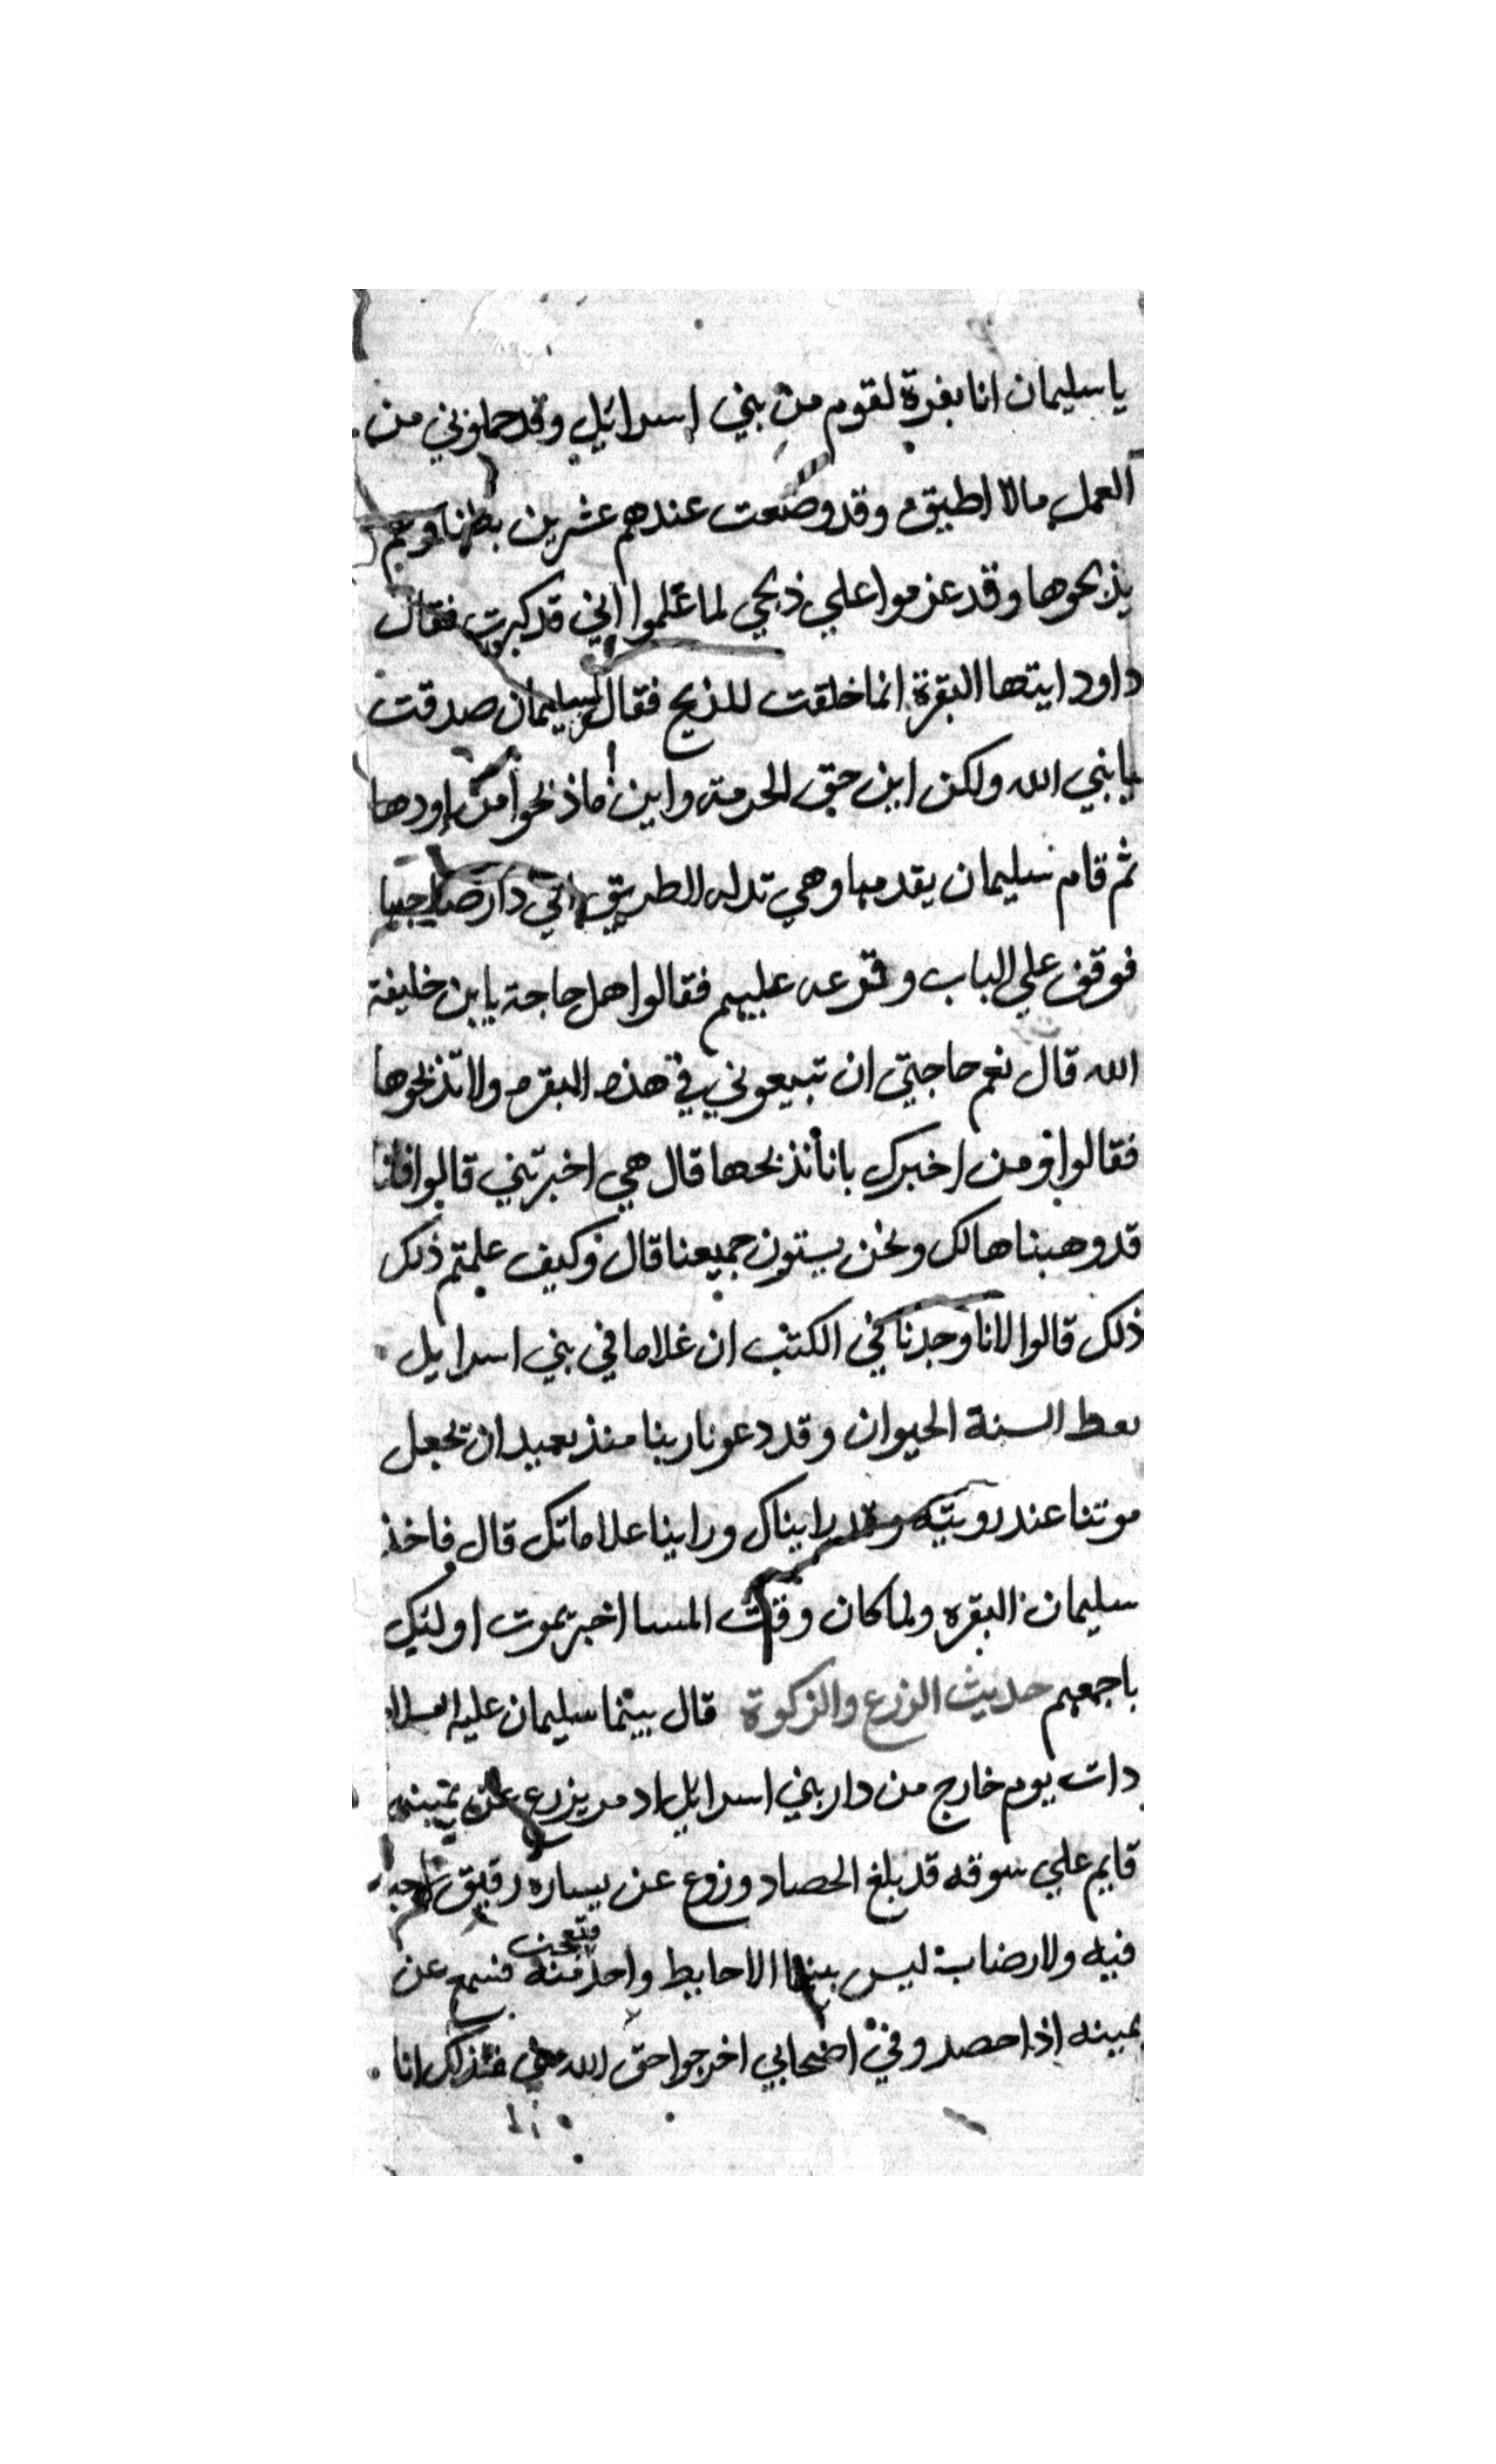 يا سليمان انا بقرة لقوم من بني اسرائيل وقد حملوني من
العمل مالا اطيق وقد وضعت عندهم عشرين بطنا وهم
يذبحوها وقد عزموا علي ذبحي لما علموا اني قد كبرت فقال
داود ايتها البقرة انما خلقت للذبح فقال سليمان صدقت
يا نبي الله ولكن اين حق الحرمة واين ماذبحوا من اودها
ثم قام سليمان يقدمها وهي تدله الطريق الي دار صاحبها
فوقف علي الباب وقرعه عليهم فقالوا هل حاجة يابن خليفة
الله قال نعم حاجتي ان تبيعوني في هذه البقره ولا تذبحوها
فقالوا ومن اخبرك بانا نذبحها قال هي اخبرتني قالوا فانا
قد وهبناها لك ونحن يستون جميعنا قال وكيف علمتم ذلك
ذلك قالوا لانا وجدنا في الكتب ان غلاما في بني اسرايل
يعط السنة الحيوان وقد دعونا ربنا منذ بعيد ان تجعل
موتنا عند رويته وقد رايناك وراينا علاماتك قال فاخذ
سليمان البقره ولما كان وقت المسا اخبر بموت اوليك
باجمعهم حديث الزرع والزكوة قال بينما سليمان عليه السلام
دات يوم خارج من دار بني اسرايل اد مر بزرع عن يمينه
قايم علي سوقه قد بلغ الحصاد وزرع عن يساره رقيق
فيه ولا رضابة ليس بينهما الا حايط واحد منه فتعجب فسمع عن
يمينه اذا حصد وفي اصحابي اخرجوا حق الله مني فلذلك انا